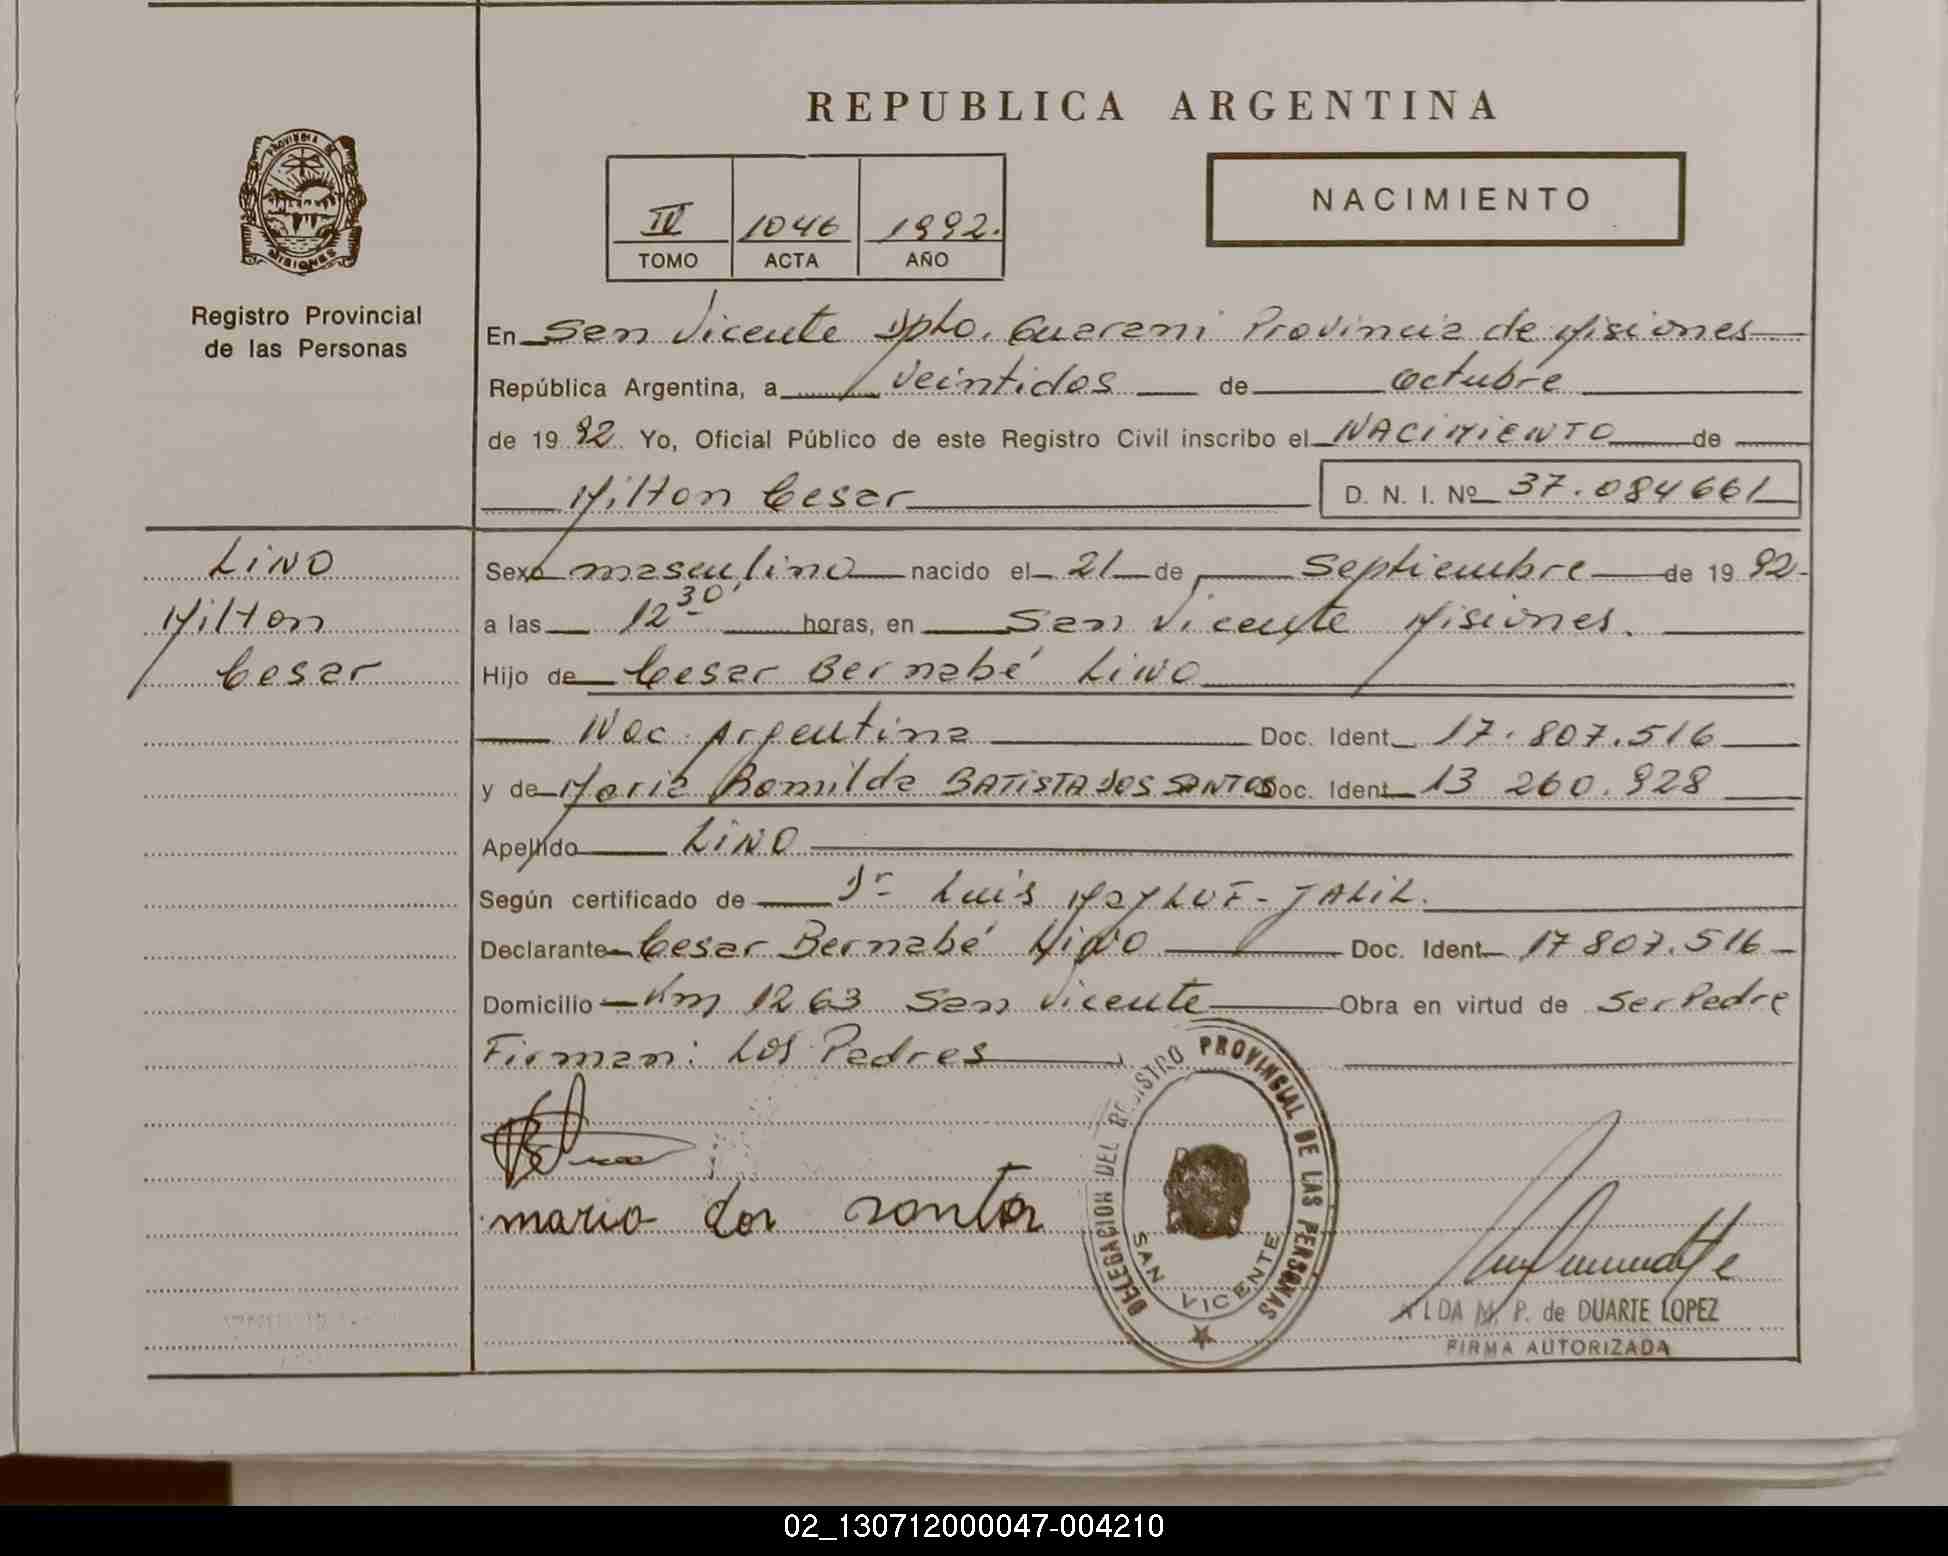 REPUBLICA ARGENTINA
PROVINCIA DE
MISIONES
Registro Provincial
de las Personas
IV 1046 1992.
TOMO ACTA AÑO
NACIMIENTO
En San Vicente Dpto. Guarani Provincia de Misiones
República Argentina, a veintidos de octubre
de 19 92 Yo, Oficial Público de este Registro Civil inscribo el NACIMIENTO de
Milton Cesar D. N. I. Nº 37.084661
LINO
Milton
Cesar
Sexo masculino nacido el 21 de Septiembre de 19 92
a las 12 30 horas, en San Vicente Misiones.
Hijo de Cesar Bernabé LINO
Nac. Argentina Doc. Ident. 17.807.516
y de Maria Romilda BATISTA DOS SANTOS Doc. Ident. 13 260.928
Apellido LINO
Según certificado de Dr Luis MAYLUF-JALIL.
Declarante Cesar Bernabé LINO Doc. Ident. 17 807.516
Domicilio Km 1263 San Vicente Obra en virtud de Ser Padre
Firman: Los Padres
maria dos santos
DELEGACION DEL REGISTRO PROVINCIAL DE LAS PERSONAS
SAN VICENTE
ALDA M. P. de DUARTE LOPEZ
FIRMA AUTORIZADA
02_130712000047-004210